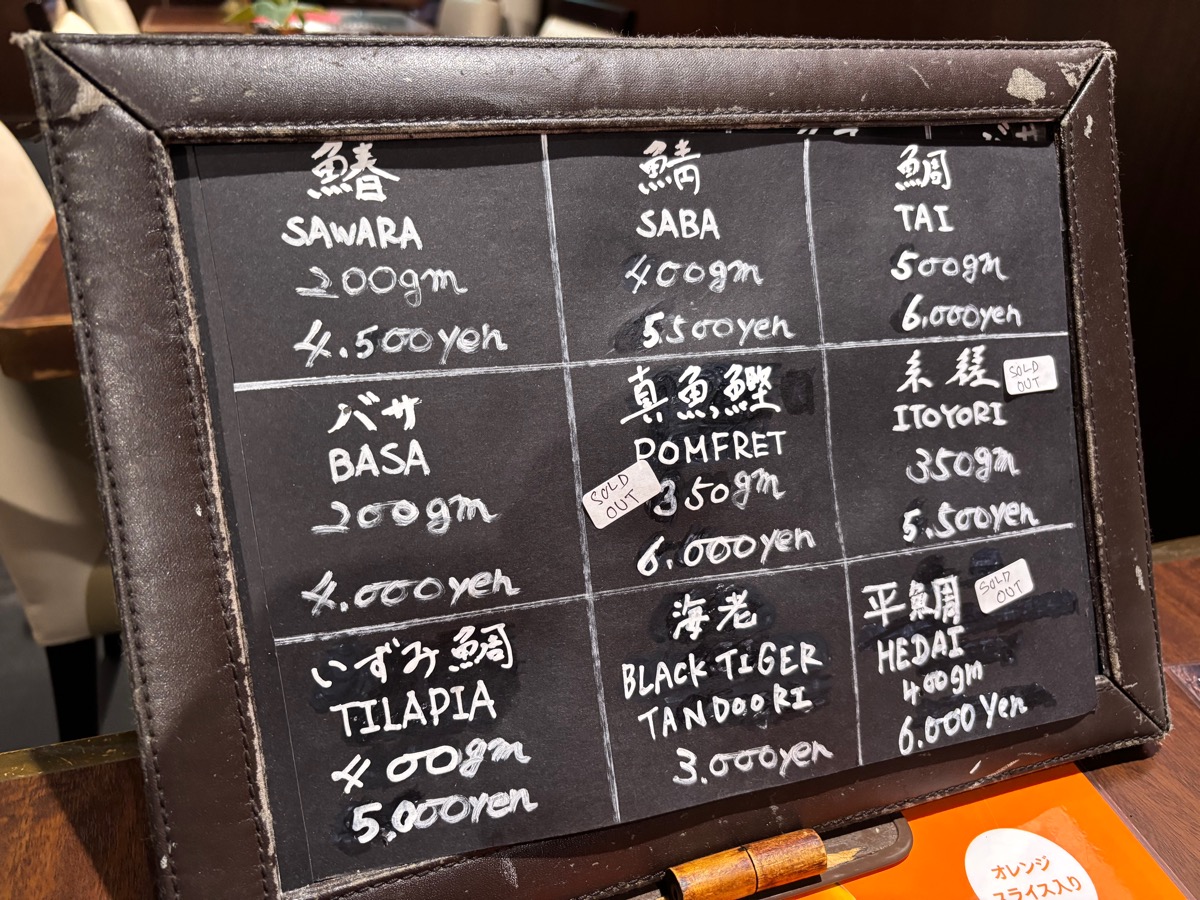 鰆
SAWARA
200gm
4.500yen
鯖
SABA
400gm
5.500yen
鯛
TAI
500gm
6.000yen
バサ
BASA
200gm
4.000yen
真魚鰹
POMFRET
SOLD
OUT
350gm
6.000yen
糸
SOLD
OUT
ITOYORI
350gm
5.500yen
いずみ鯛
TILAPIA
400gm
5.000yen
海老
BLACK TIGER
TANDOORI
3.000yen
平鯛
SOLD
OUT
HEDAI
400gm
6.000Yen
オレンジ
スライス入り